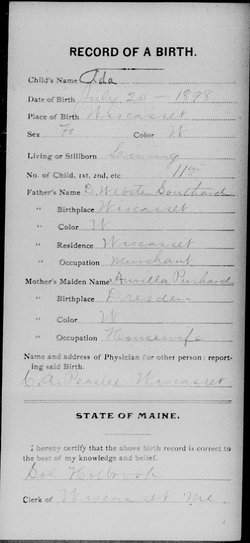 RECORD OF A BIRTH.
Child's Name Ada
Date of Birth July 20 1898
Place of Birth Wiscasset
Sex F Color W
Living or Stillborn Living
No. of Child, 1st, 2nd, etc 11th
Father's Name D. Webster Southard
" Birthplace Wiscasset
" Color W
" Residence Wiscasset
" Occupation Merchant
Mother's Maiden Name
" Birthplace Dresden
" Color W
" Occupation Housewife
Name and address of Physician (or other person) report-
ing said Birth.
C. A. Peaslee Wiscasset
STATE OF MAINE.
I hereby certify that the above birth record is correct to
the best of my knowledge and belief.
Holbrook
Clerk of Wiscasset Me.